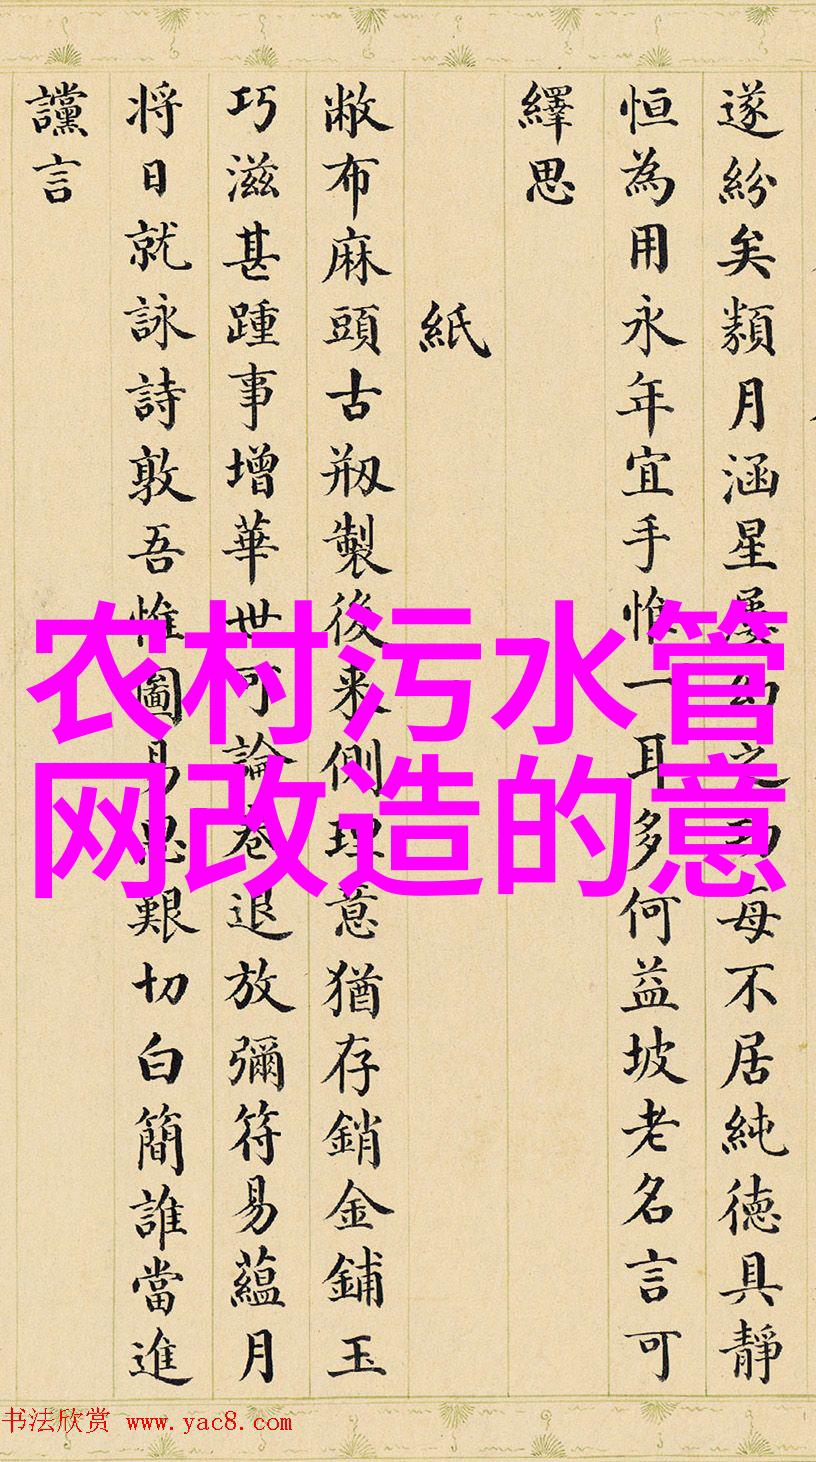 遂紛矣類月涵星之功每不居純德具靜
恒為用永年宜手惟一耳多何益坡老名言可
繹思
紙
敝布麻頭古剏製後来側理意猶存銷金鋪玉
巧滋甚踵事增華世可論卷退放彌符易蘊月
将日就詠詩敦吾惟圖易思艱切白簡誰當進
讜言
农村污水管
网改造的意
书法欣赏 www.yac8.com